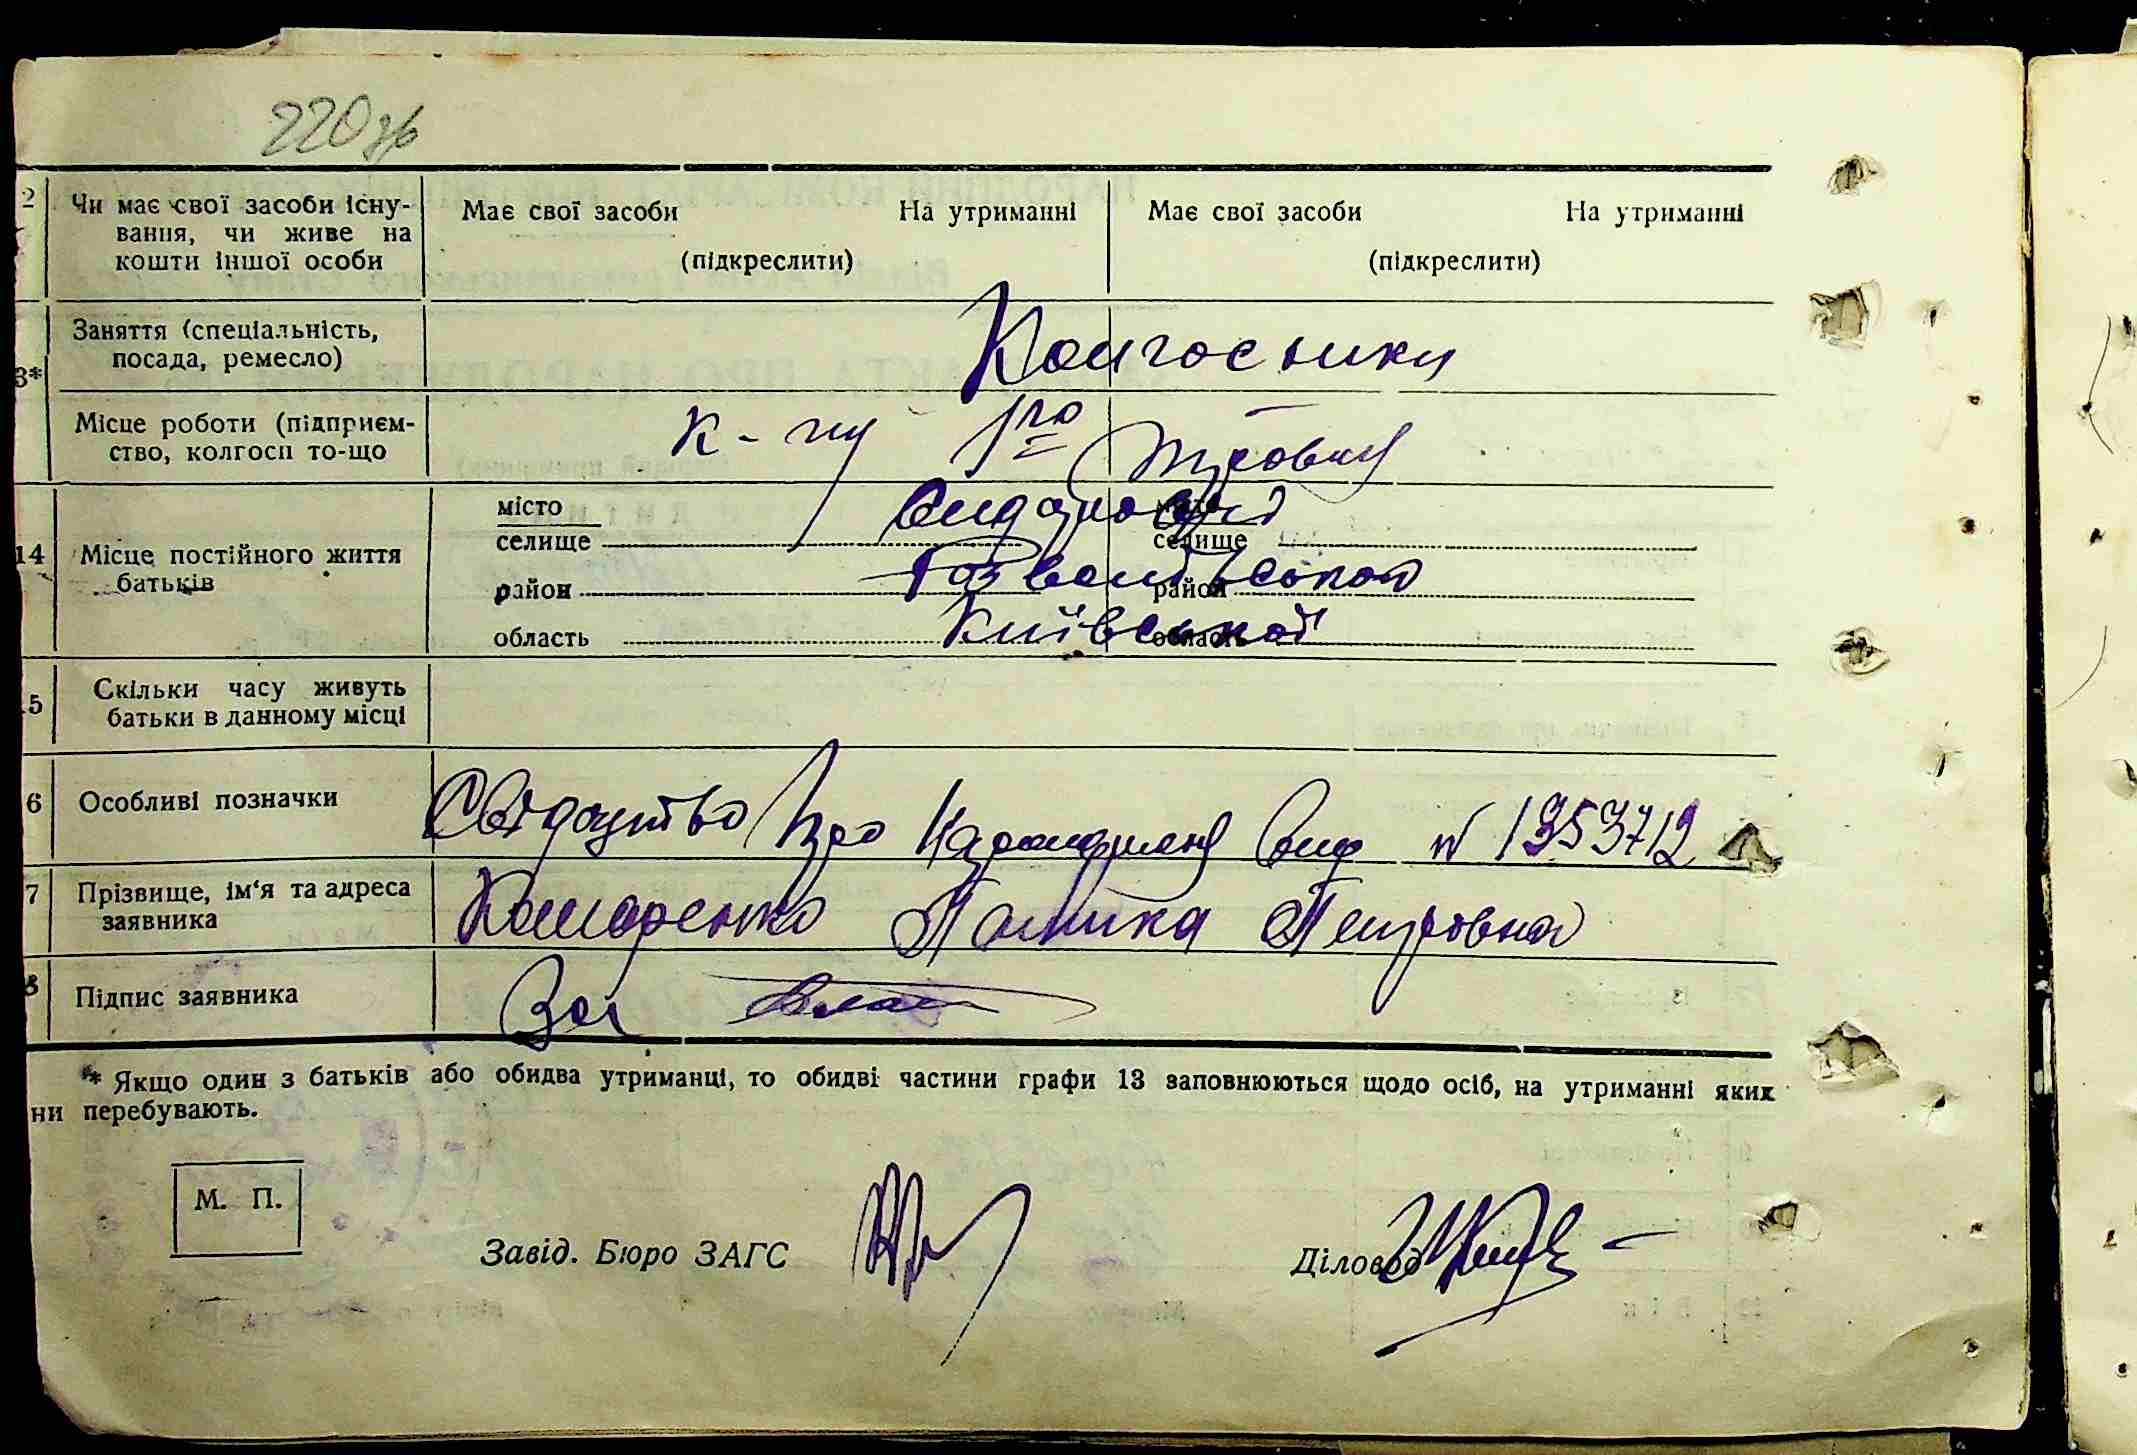 220 зв
2 Чи має свої засоби існу- Має свої засоби На утриманні Має свої засоби На утриманні
вання, чи живе на
кошти іншої особи (підкреслити) (підкреслити)
Заняття (спеціальність, Колгосники
посада, ремесло)
3*
Місце роботи (підприєм- К-пу 1го
ство, колгосп то-що
місто
селище селище
14 Місце постійного життя
батьків
район район
область Київської область
5 Скільки часу живуть
батьки в данному місці
6 Особливі позначки Свідоцтво про народження вид № 1353712
7 Прізвище, ім'я та адреса Комаренко Петровна
заявника
8 Підпис заявника За
* Якщо один з батьків або обидва утриманці, то обидві частини графи 13 заповнюються щодо осіб, на утриманні яких
ни перебувають.
М. П.
Завід. Бюро ЗАГС Діловод